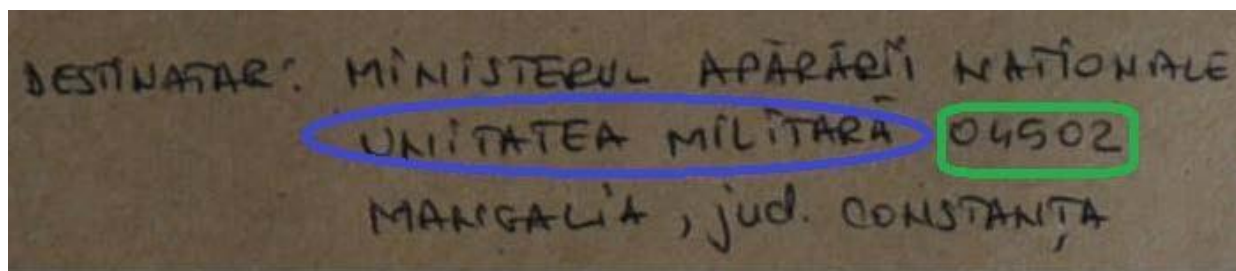 DESTINATAR: MINISTERUL APĂRĂRII NAȚIONALE
UNITATEA MILITARĂ 04502
MANGALIA, jud. CONSTANȚA